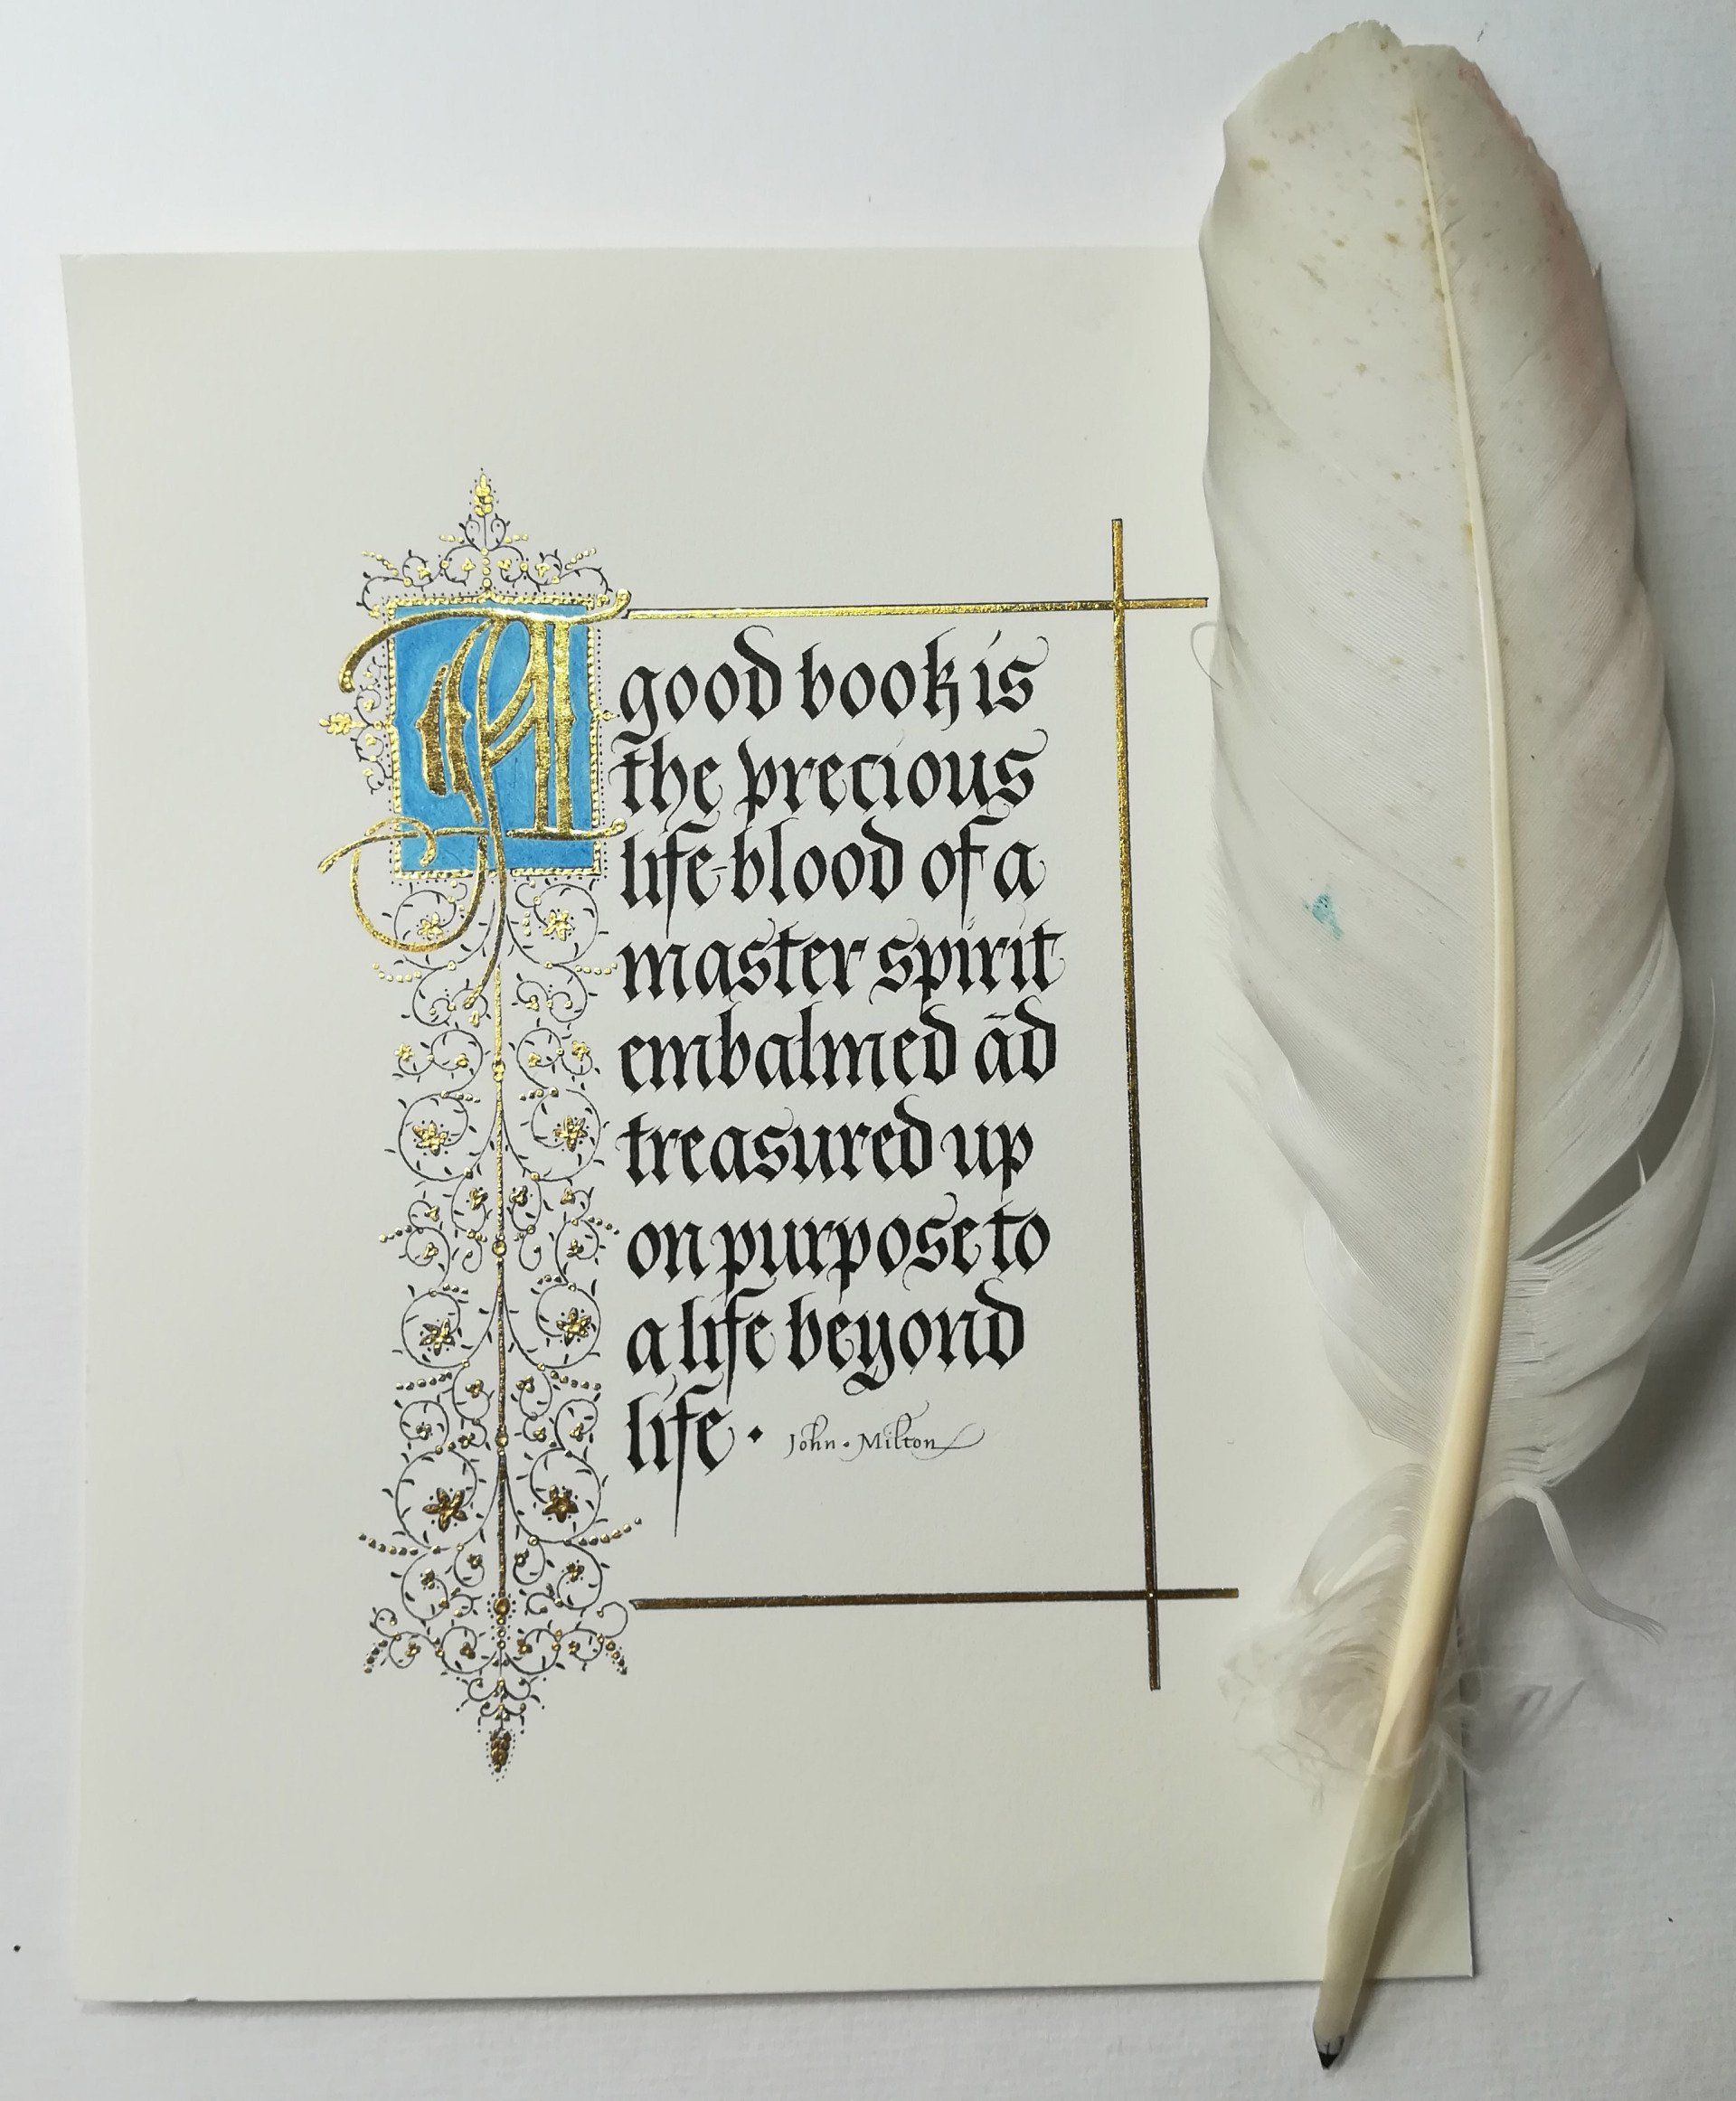 A good book is
the precious
life-blood of a
master spirit
embalmed ād
treasured up
on purpose to
a life beyond
life · John · Milton